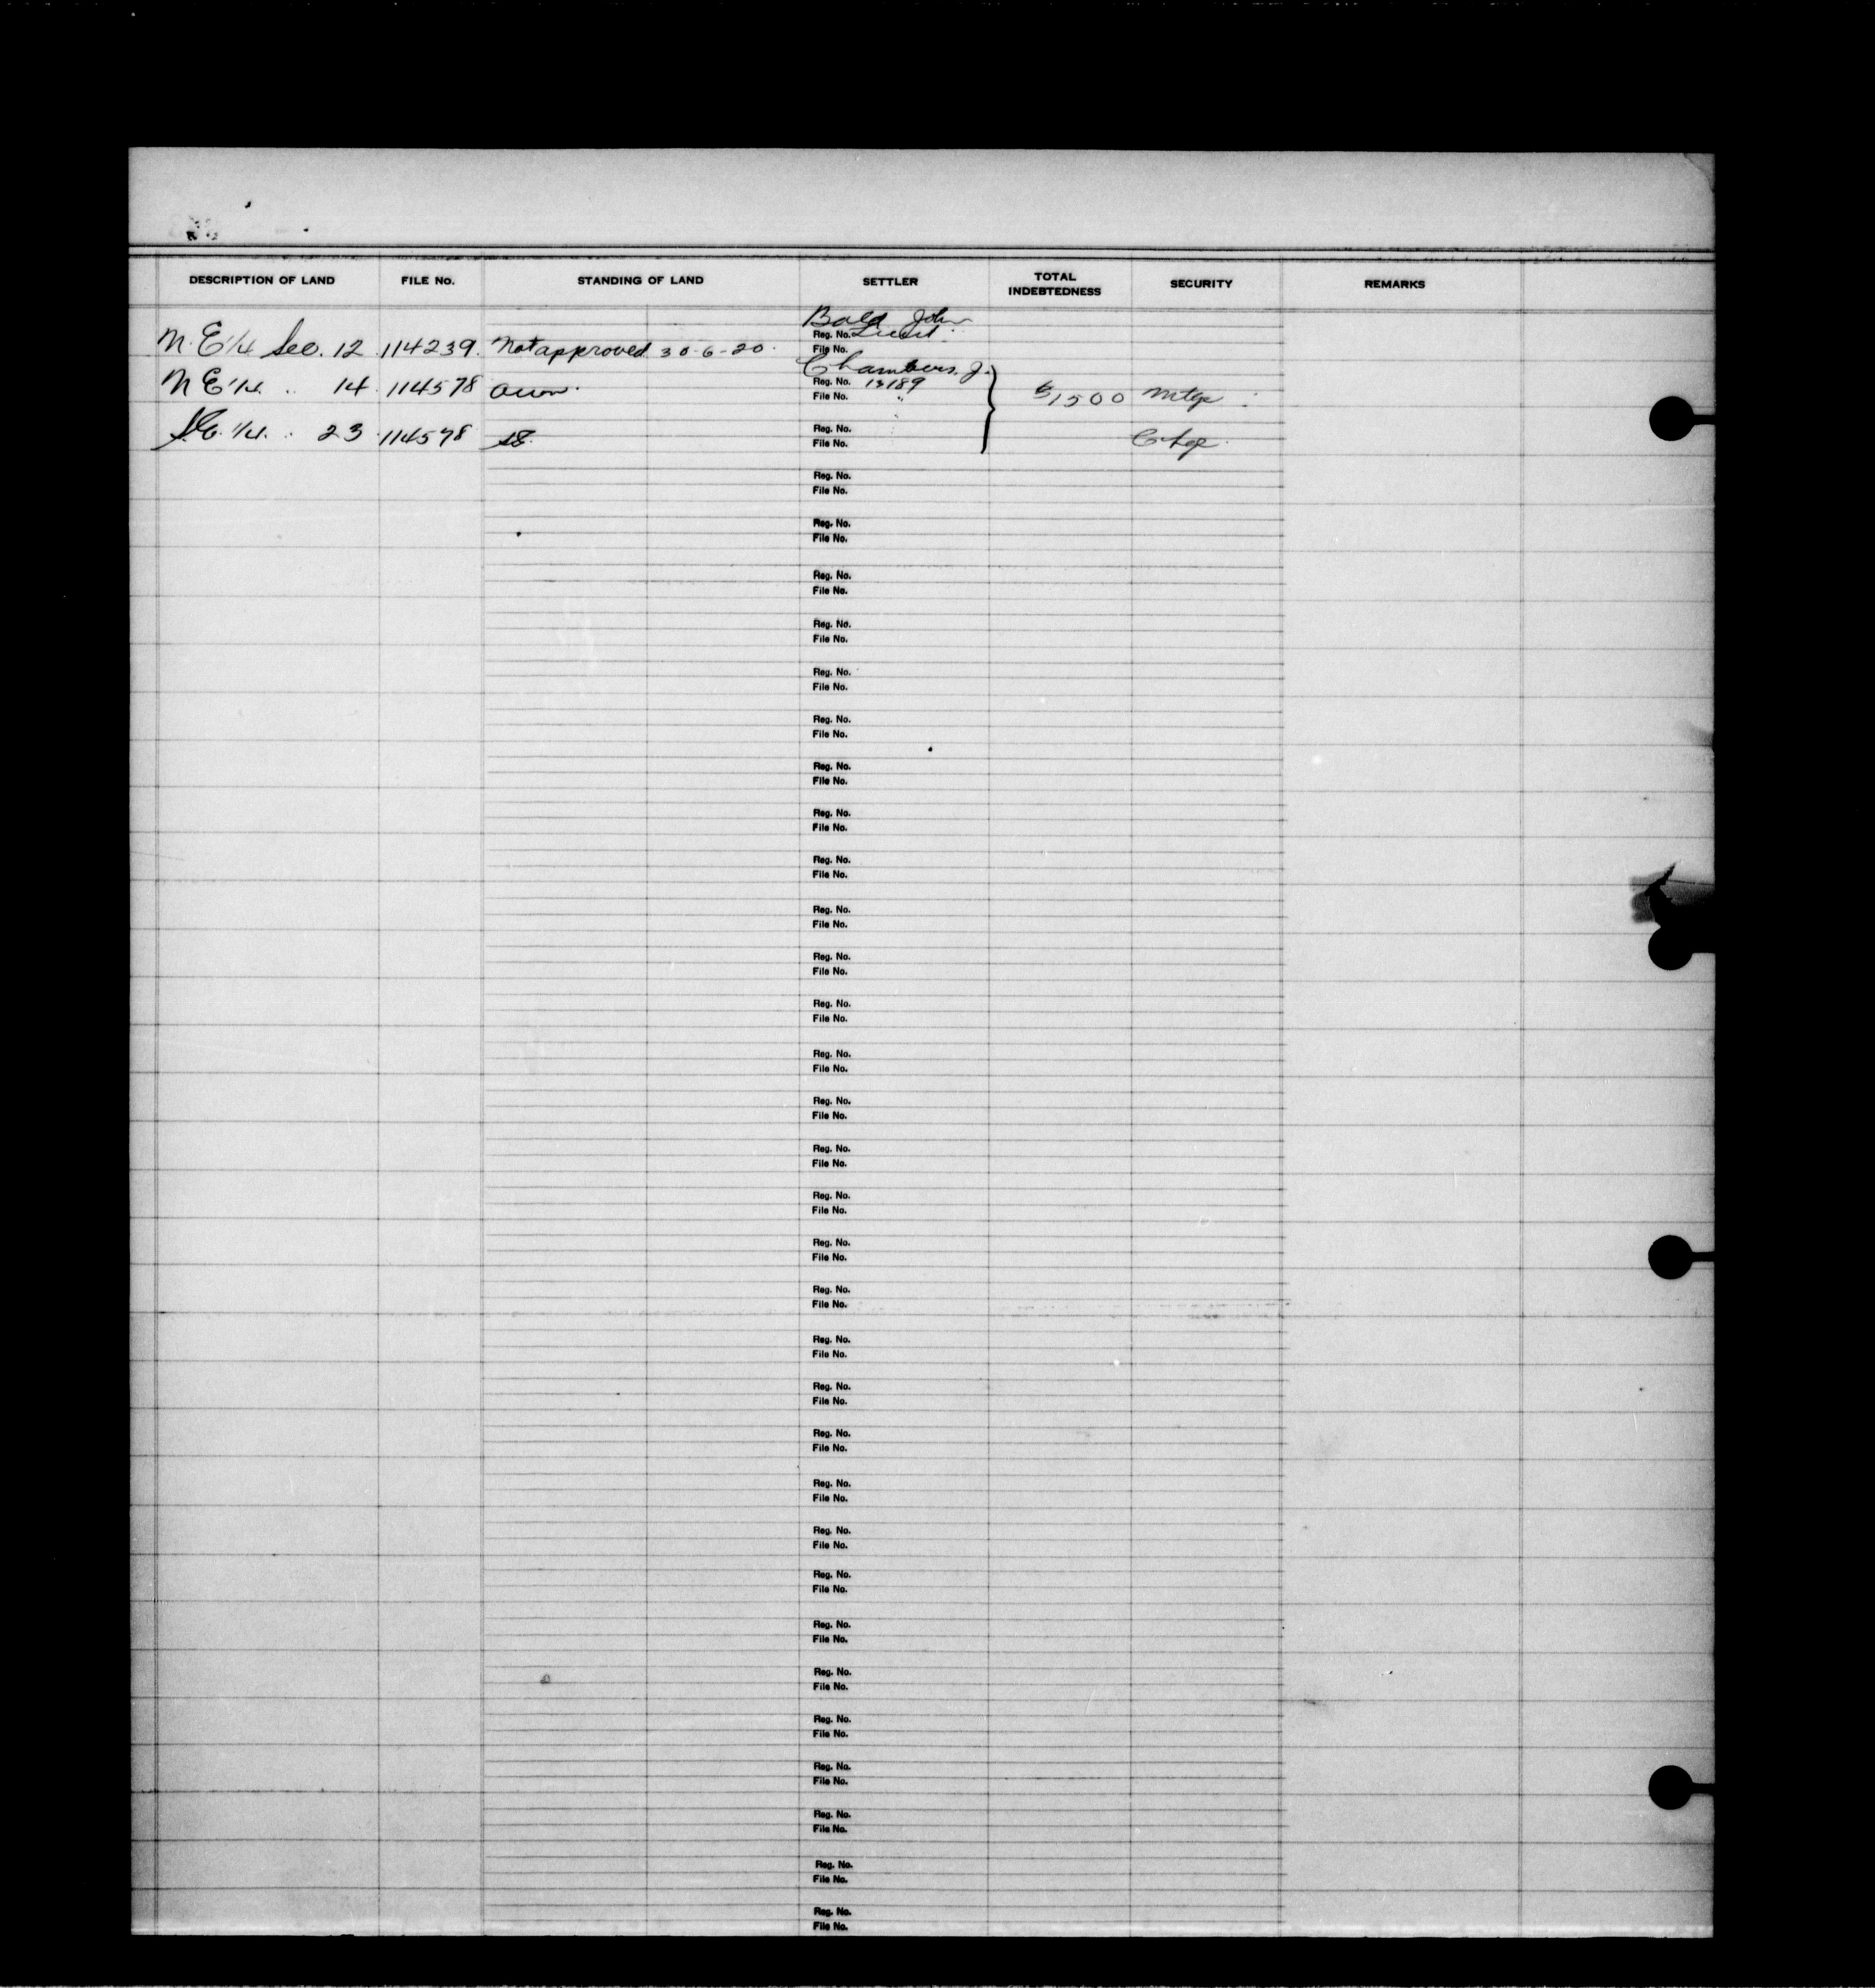 DESCRIPTION OF LAND FILE No. STANDING OF LAND SETTLER TOTAL INDEBTEDNESS SECURITY REMARKS
Bald John
N.E 1/4 Sec. 12 114239. Not approved 30-6-20. Reg. No. Lieut.
File No.
Chambers. J.
N E 1/4 " 14 114578 Own. Reg. No. 13189
File No. " $1500 Mtge
1/4 " 23 114578 Reg. No.
File No. Chge
Reg. No.
File No.
Reg. No.
File No.
Reg. No.
File No.
Reg. No.
File No.
Reg. No.
File No.
Reg. No.
File No.
Reg. No.
File No.
Reg. No.
File No.
Reg. No.
File No.
Reg. No.
File No.
Reg. No.
File No.
Reg. No.
File No.
Reg. No.
File No.
Reg. No.
File No.
Reg. No.
File No.
Reg. No.
File No.
Reg. No.
File No.
Reg. No.
File No.
Reg. No.
File No.
Reg. No.
File No.
Reg. No.
File No.
Reg. No.
File No.
Reg. No.
File No.
Reg. No.
File No.
Reg. No.
File No.
Reg. No.
File No.
Reg. No.
File No.
Reg. No.
File No.
Reg. No.
File No.
Reg. No.
File No.
Reg. No.
File No.